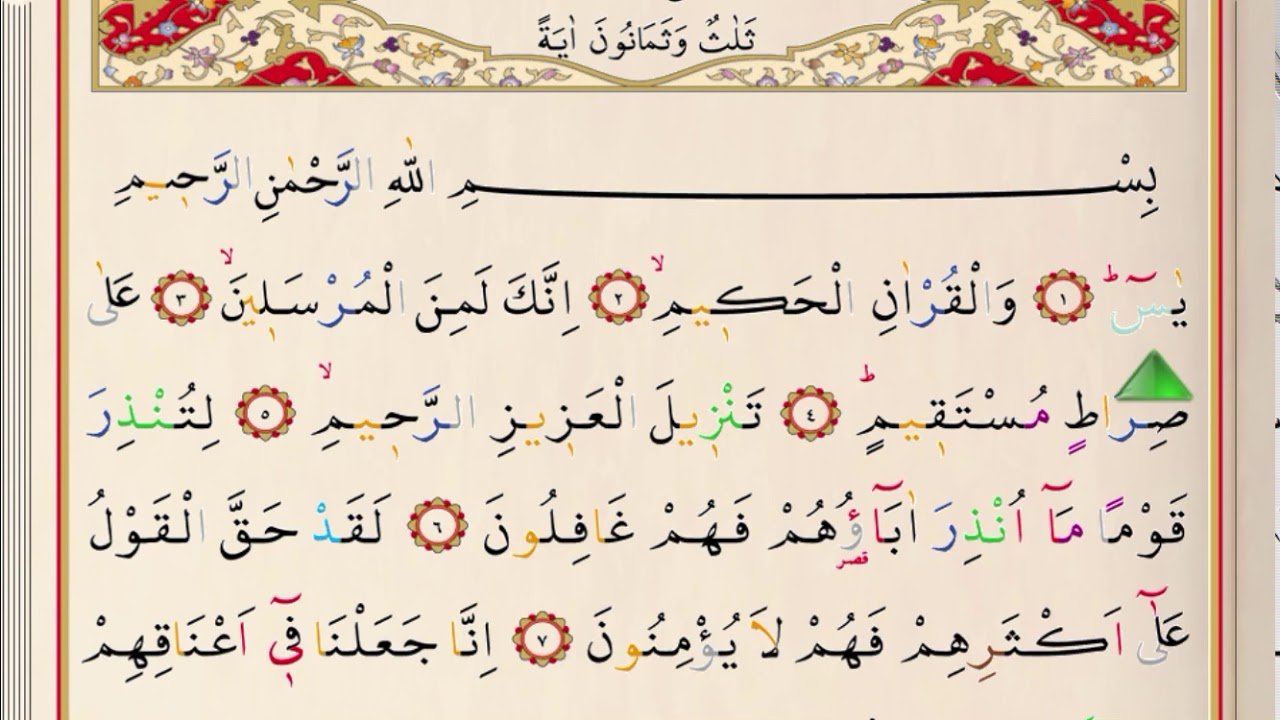 ثَلٰثٌ وَثَمَانُونَ اٰيَةً
بِسْمِ اللّٰهِ الرَّحْمٰنِ الرَّحٖيمِ
يٰسٓ ۜ ﴿١﴾ وَالْقُرْاٰنِ الْحَكٖيمِۙ ﴿٢﴾ اِنَّكَ لَمِنَ الْمُرْسَلٖينَۙ ﴿٣﴾ عَلٰى
صِرَاطٍ مُسْتَقٖيمٍؕ ﴿٤﴾ تَنْزٖيلَ الْعَزٖيزِ الرَّحٖيمِۙ ﴿٥﴾ لِتُنْذِرَ
قَوْمًا مَٓا اُنْذِرَ اٰبَٓاؤُ۬هُمْ فَهُمْ غَافِلُونَ ﴿٦﴾ لَقَدْ حَقَّ الْقَوْلُ
عَلٰٓى اَكْثَرِهِمْ فَهُمْ لَا يُؤْمِنُونَ ﴿٧﴾ اِنَّا جَعَلْنَا فٖٓي اَعْنَاقِهِمْ